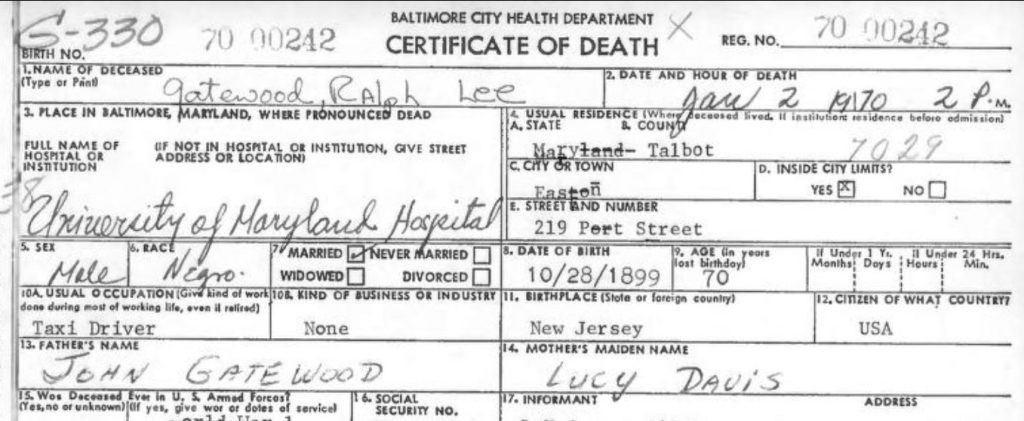 BALTIMORE CITY HEALTH DEPARTMENT
G-330 70 00242 CERTIFICATE OF DEATH X REG. NO. 70 00242
BIRTH NO.
1. NAME OF DECEASED
(Type or Print) Gatewood, Ralph Lee
2. DATE AND HOUR OF DEATH
Jan 2 1970 2 P. M.
3. PLACE IN BALTIMORE, MARYLAND, WHERE PRONOUNCED DEAD
FULL NAME OF HOSPITAL OR INSTITUTION
(IF NOT IN HOSPITAL OR INSTITUTION, GIVE STREET
ADDRESS OR LOCATION)
University of Maryland Hospital
4. USUAL RESIDENCE (Where deceased lived. If institution: residence before admission)
A. STATE B. COUNTY
Maryland- Talbot 7029
C. CITY OR TOWN
Easton
D. INSIDE CITY LIMITS?
YES X NO
E. STREET AND NUMBER
219 Port Street
5. SEX
Male
6. RACE
Negro.
7. MARRIED ✓ NEVER MARRIED
WIDOWED DIVORCED
8. DATE OF BIRTH
10/28/1899
9. AGE (in years
last birthday)
70
If Under 1 Yr.
Months Days
If Under 24 Hrs.
Hours Min.
10A. USUAL OCCUPATION (Give kind of work
done during most of working life, even if retired)
Taxi Driver
10B. KIND OF BUSINESS OR INDUSTRY
None
11. BIRTHPLACE (State or foreign country)
New Jersey
12. CITIZEN OF WHAT COUNTRY?
USA
13. FATHER'S NAME
JOHN GATEWOOD
14. MOTHER'S MAIDEN NAME
LUCY DAVIS
15. Was Deceased Ever in U. S. Armed Forces?
(Yes, no or unknown) (If yes, give war or dates of service)
16. SOCIAL
SECURITY NO.
17. INFORMANT ADDRESS